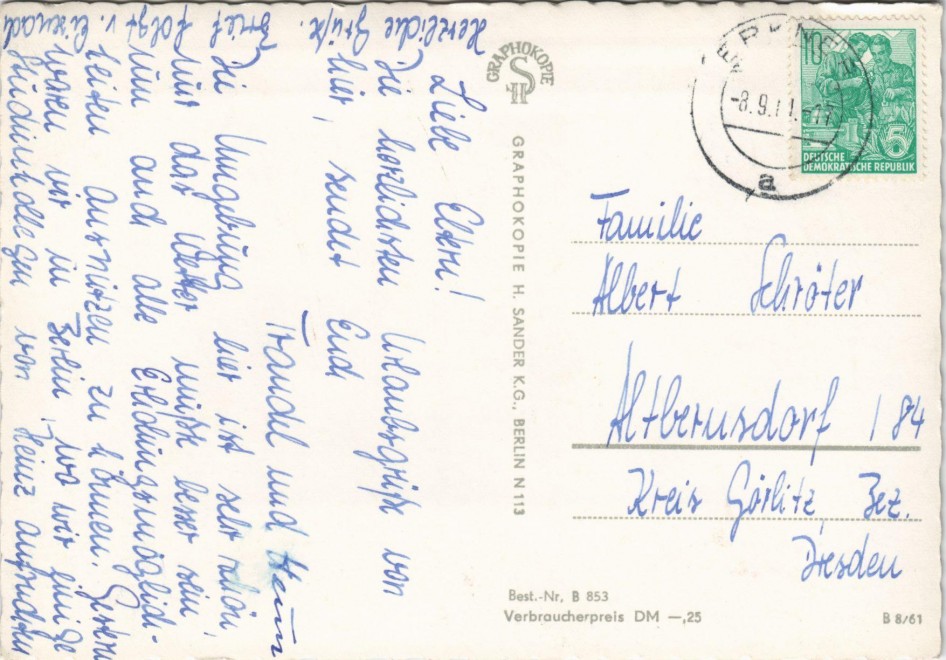 GRAPHOKOPIE
SH
GRAPHOKOPIE H. SANDER K.G., BERLIN N 113
10
5
DEUTSCHE
DEMOKRATISCHE REPUBLIK
-8.9.61.-17
a
Liebe Eltern!
Die herzlichsten Urlaubsgrüße von
hier, sendet Euch
Traudel und Heinz
Die Umgebung hier ist sehr schön,
nur das Wetter müßte besser sein,
um auch alle Erholungsmöglich-
keiten ausnützen zu können. Gestern
waren wir in Berlin, wo wir einige
Studienkollegen von Heinz aufsuchten
Herzliche Grüße. Brief folgt v.
Familie
Albert Schröter
Altbernsdorf 184
Kreis Görlitz, Bez.
Dresden
Best.-Nr. B 853
Verbraucherpreis DM —,25
B 8/61